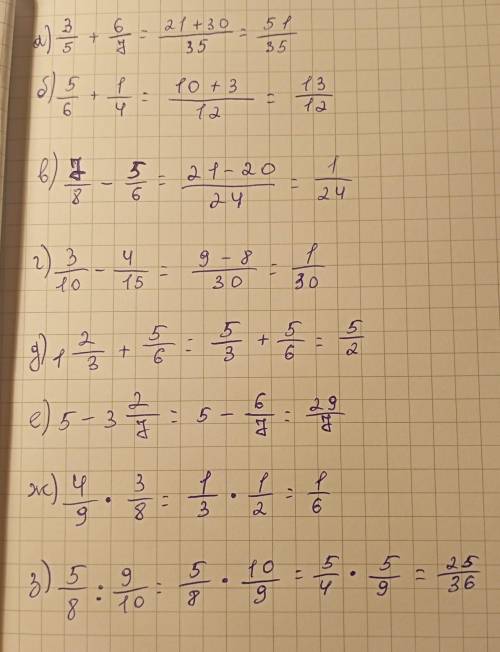 а) 3/5 + 6/7 = (21+30)/35 = 51/35
б) 5/6 + 1/4 = (10+3)/12 = 13/12
в) 7/8 - 5/6 = (21-20)/24 = 1/24
г) 3/10 - 4/15 = (9-8)/30 = 1/30
д) 1 2/3 + 5/6 = 5/3 + 5/6 = 5/2
е) 5 - 3 2/7 = 5 - 6/7 = 29/7
ж) 4/9 · 3/8 = 1/3 · 1/2 = 1/6
з) 5/8 : 9/10 = 5/8 · 10/9 = 5/4 · 5/9 = 25/36